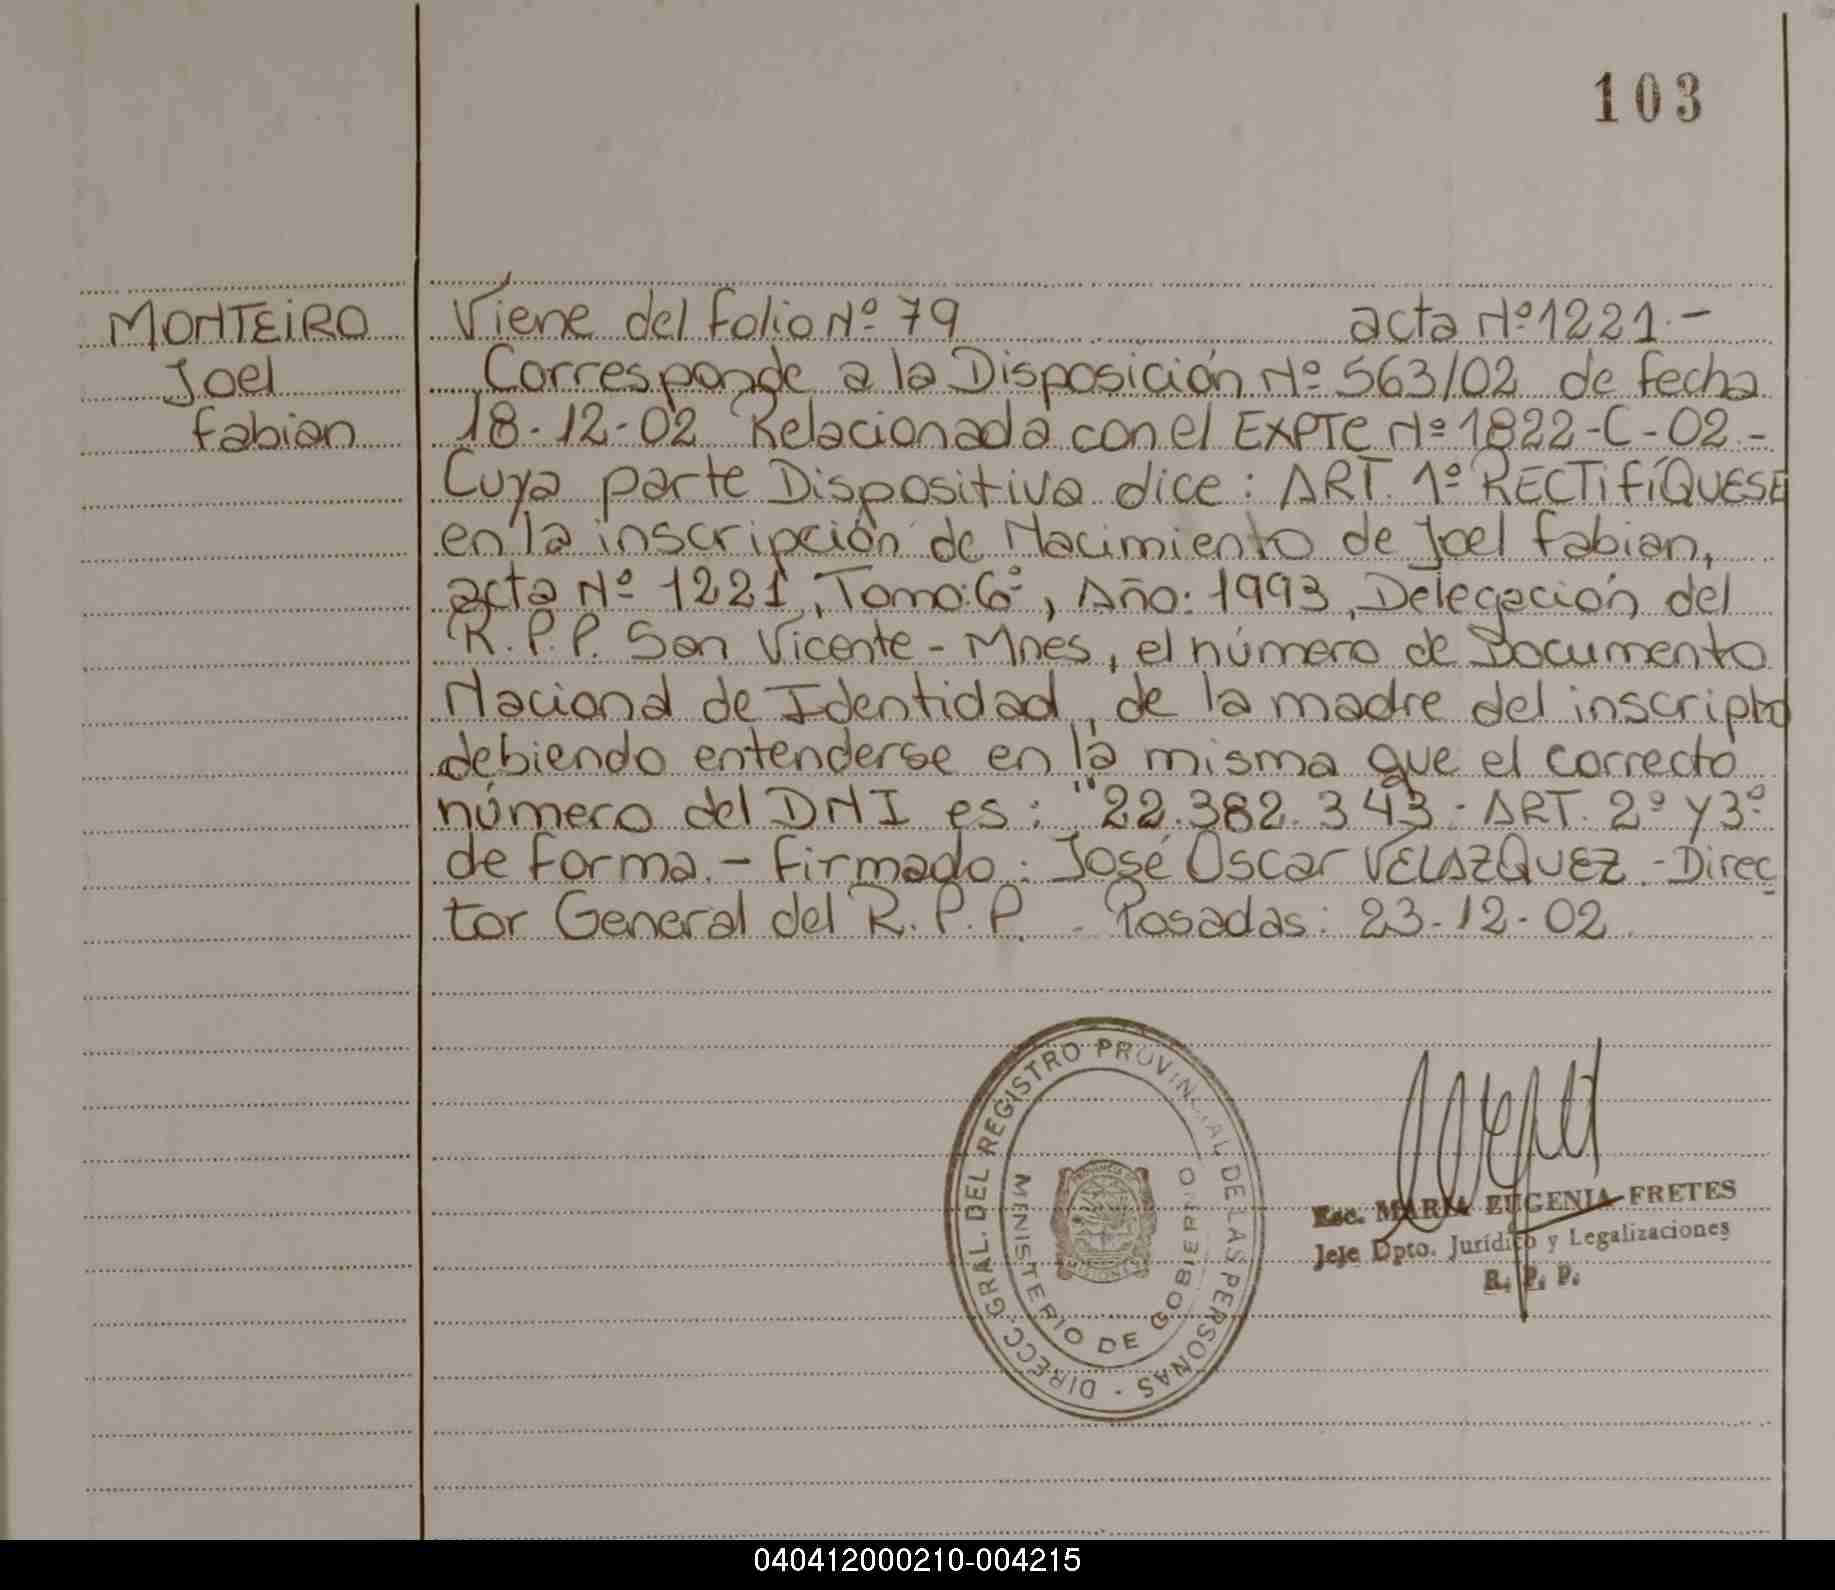 103
MONTEIRO
Joel
Fabian
Viene del folio Nº 79 acta Nº 1221.-
Corresponde a la Disposición Nº 563/02 de fecha
18-12-02 Relacionada con el EXPTE Nº 1822-C-02.-
Cuya parte Dispositiva dice: ART. 1º RECTIFÍQUESE
en la inscripción de Nacimiento de Joel Fabian,
acta Nº 1221, Tomo: 6º, Año: 1993, Delegación del
R.P.P. San Vicente - Mnes, el número de Documento
Nacional de Identidad, de la madre del inscripto
debiendo entenderse en la misma que el correcto
número del DNI es: "22.382.343.- ART. 2º y 3º
de forma.- Firmado: José Oscar VELAZQUEZ.- Direc
tor General del R.P.P. - Posadas: 23-12-02.
DIRECC. GRAL. DEL REGISTRO PROVINCIAL DE LAS PERSONAS -
MINISTERIO DE GOBIERNO
Esc. MARIA EUGENIA FRETES
Jefe Dpto. Jurídico y Legalizaciones
R. P. P.
040412000210-004215